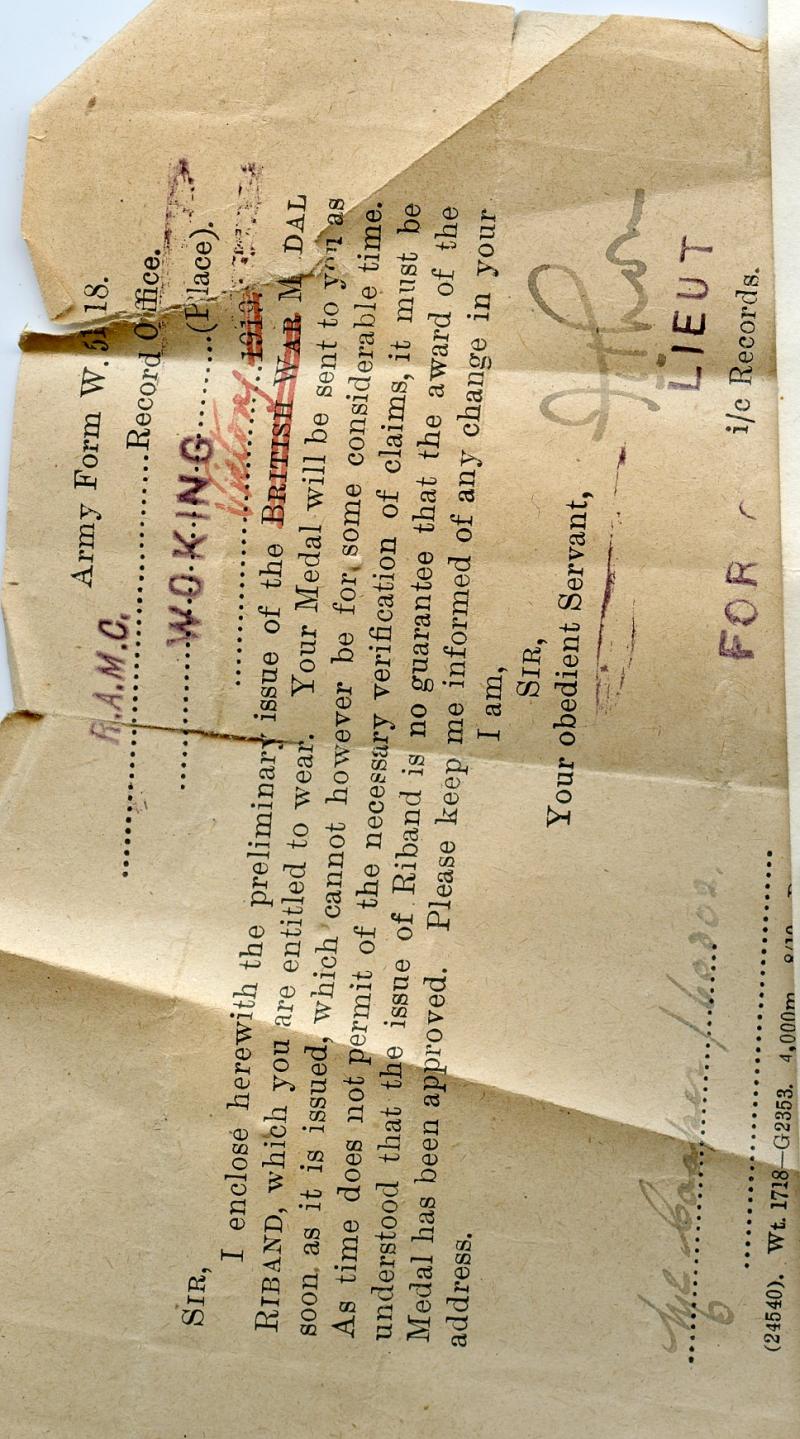 Army Form W. 5118.
R.A.M.C. Record Office.
WOKING (Place).
1919
SIR,
I enclose herewith the preliminary issue of the Victory BRITISH WAR MEDAL
RIBAND, which you are entitled to wear. Your Medal will be sent to you as
soon as it is issued, which cannot however be for some considerable time.
As time does not permit of the necessary verification of claims, it must be
understood that the issue of Riband is no guarantee that the award of the
Medal has been approved. Please keep me informed of any change in your
address.
I am,
SIR,
Your obedient Servant,
LIEUT
FOR i/c Records.
(24540). Wt. 1718—G2353. 4,000m.